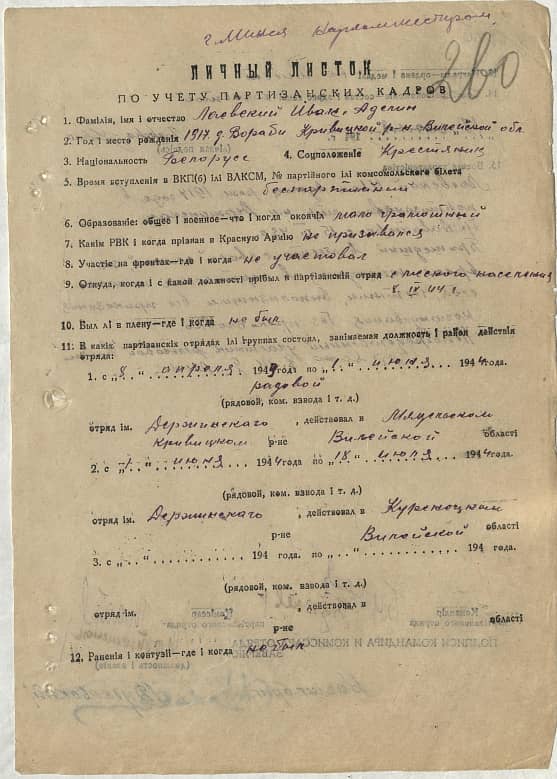 г. Минск
280
ЛИЧНЫЙ ЛИСТОК
ПО УЧЕТУ ПАРТИЗАНСКИХ КАДРОВ
1. Фамілія, імя і отчество Лаевский Иван Адамов
2. Год і место рожденія 1917 д. Вораби Кривицкий р-н. Вилейской обл
3. Національность белорусс 4. Соцположеніе Крестянин
5. Время вступленія в ВКП(б) ілі ВЛКСМ, № партійного ілі комсомольского білета
беспартийный
6. Образованіе: общее і военное—что і когда окончіл мало грамотный
7. Какім РВК і когда прізван в Красную Армію не призывался
8. Участіе на фронтах—где і когда не участвовал
9. Откуда, когда і с какой должності прібыл в партізанскій отряд с местного населения
8 IV 44 г.
10. Был лі в плену—где і когда не был
11. В какіх партізанскіх отрядах ілі группах состоял, занімаемая должность і район действія
отряда:
1. с „8„ апреля 1944 года по „1„ июня 1944 года
рядовой
(рядовой, ком. взвода і т. д.)
отряд ім. Держинского, действовал в
Кривицком р-не Вилейской области
2. с „1„ июня 1944 года по „18„ июля 1944 года
(рядовой, ком. взвода і т. д.)
отряд ім. Держинского, действовал в Куренецком
р-не Вилейской області
3. с „..„ 194 года. по „..„ 194 года.
(рядовой, ком. взвода і т. д.)
отряд ім. , действовал в
р-не області
12. Раненія і контузіі—где і когда не был